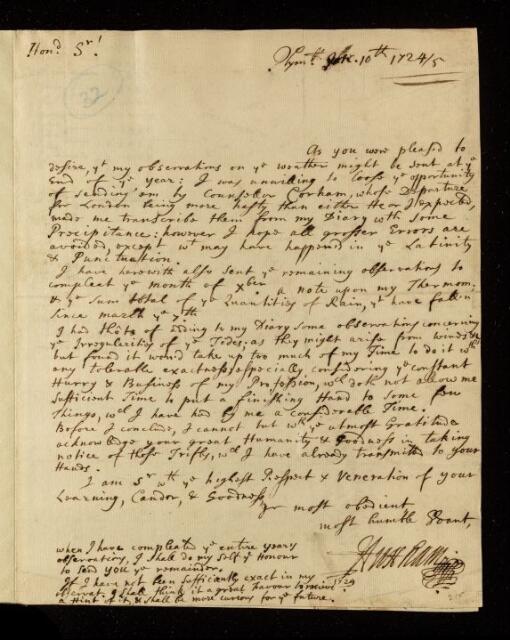 Hon.d Sr!
Plym.th 10th 1724/5
32
As you were pleased to
desire, yt my observations on ye weather might be sent at ye
End of ye year: I was unwilling to loose ye opportunity
of sending 'em by Counsellor Gorham, whose Departure
for London being more hasty than either He or I expected,
made me transcribe them from my Diary wth some
Precipitance: however I hope all grosser Errors are
avoided, except wt may have happend in ye Latinity
& Punctuation.
I have herewith also sent ye remaining observations to
compleat ye month of xber, a note upon my Thermom.
& ye Sum total of ye Quantities of Rain, yt have fallen
since march ye 7th
I had thôts of adding to my Diary some observations concerning
ye Irregularity of ye Tides; as they might arise from winds &c
but found it would take up two much of my Time to do it wth
any tolerable exactness, especially considering ye constant
Hurry & Business of my Profession, wch doth not allow me
sufficient Time to put a finishing Hand to some few
Things, wch I have had by me a considerable Time.
Before I conclude, I cannot but wth ye utmost Gratitude
acknowledge your great Humanity & Goodness in taking
notice of those Trifles, wch I have already transmitted to your
Hands.
I am Sr wth ye highest Respect & Veneration of your
Learning, Candor, & Goodness,
yr most obedient
most humble Servant,
Huxham
when I have compleated ye entire years
observations, I shall do my self ye Honour
to send you ye remainder.
If I have not been sufficiently exact in my
observat. I shall think it a great favour to receive
a Hint of it, & shall be more curious for ye future.